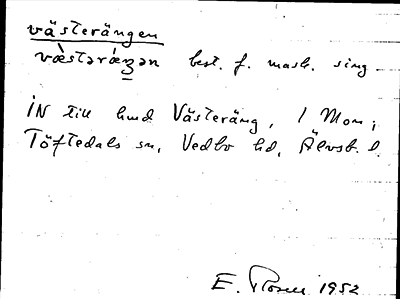 västerängen
væ̀stəráŋən best. f. mask. sing.
IN till hmd Västeräng, 1 Mon;
Töftedals sn, Vedbo hd, Älvsb. l.
E. 1952